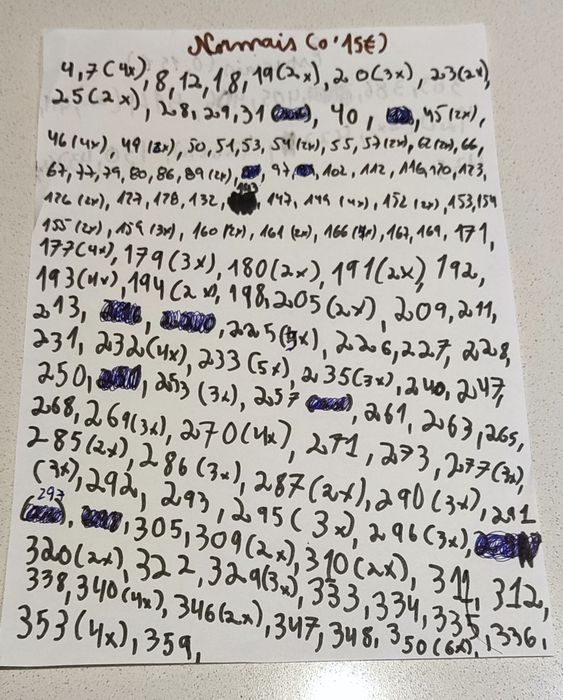 Normais (0'15€)
4,7(4x), 8, 12, 18, 19(2x), 20(3x), 23(2x),
25(2x), 28, 29, 31, 40, 45(2x),
46(4x), 49, 50, 51, 53, 54(2x), 55, 57(2x), 62(2x), 66,
67, 77, 79, 80, 86, 89(2x), 97, 102, 112, 116, 120, 123,
126(2x), 127, 128, 132, 147, 149(4x), 152(2x), 153, 154
155(2x), 159(3x), 160(2x), 161(2x), 166, 167, 169, 171,
177(4x), 179(3x), 180(2x), 191(2x), 192,
193(4x), 194(2x), 198, 205(2x), 209, 211,
213, 225, 226, 227, 228,
231, 232(4x), 233(5x), 235(3x), 240, 247,
250, 253(3x), 257, 261, 263, 265,
268, 269(3x), 270(4x), 271, 273, 277(3x),
285(2x), 286(3x), 287(2x), 290(3x), 291
(3x), 292, 293, 295(3x), 296(3x),
297, 305, 309(2x), 310(2x), 311, 312,
320(2x), 322, 329(3x), 333, 334, 335,
338, 340(4x), 346(2x), 347, 348, 350(6x), 336,
353(4x), 359,